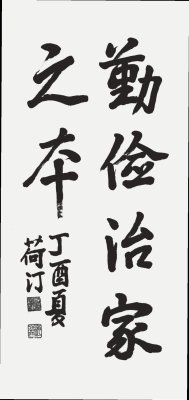 勤俭治家
之本
丁酉夏
荷汀